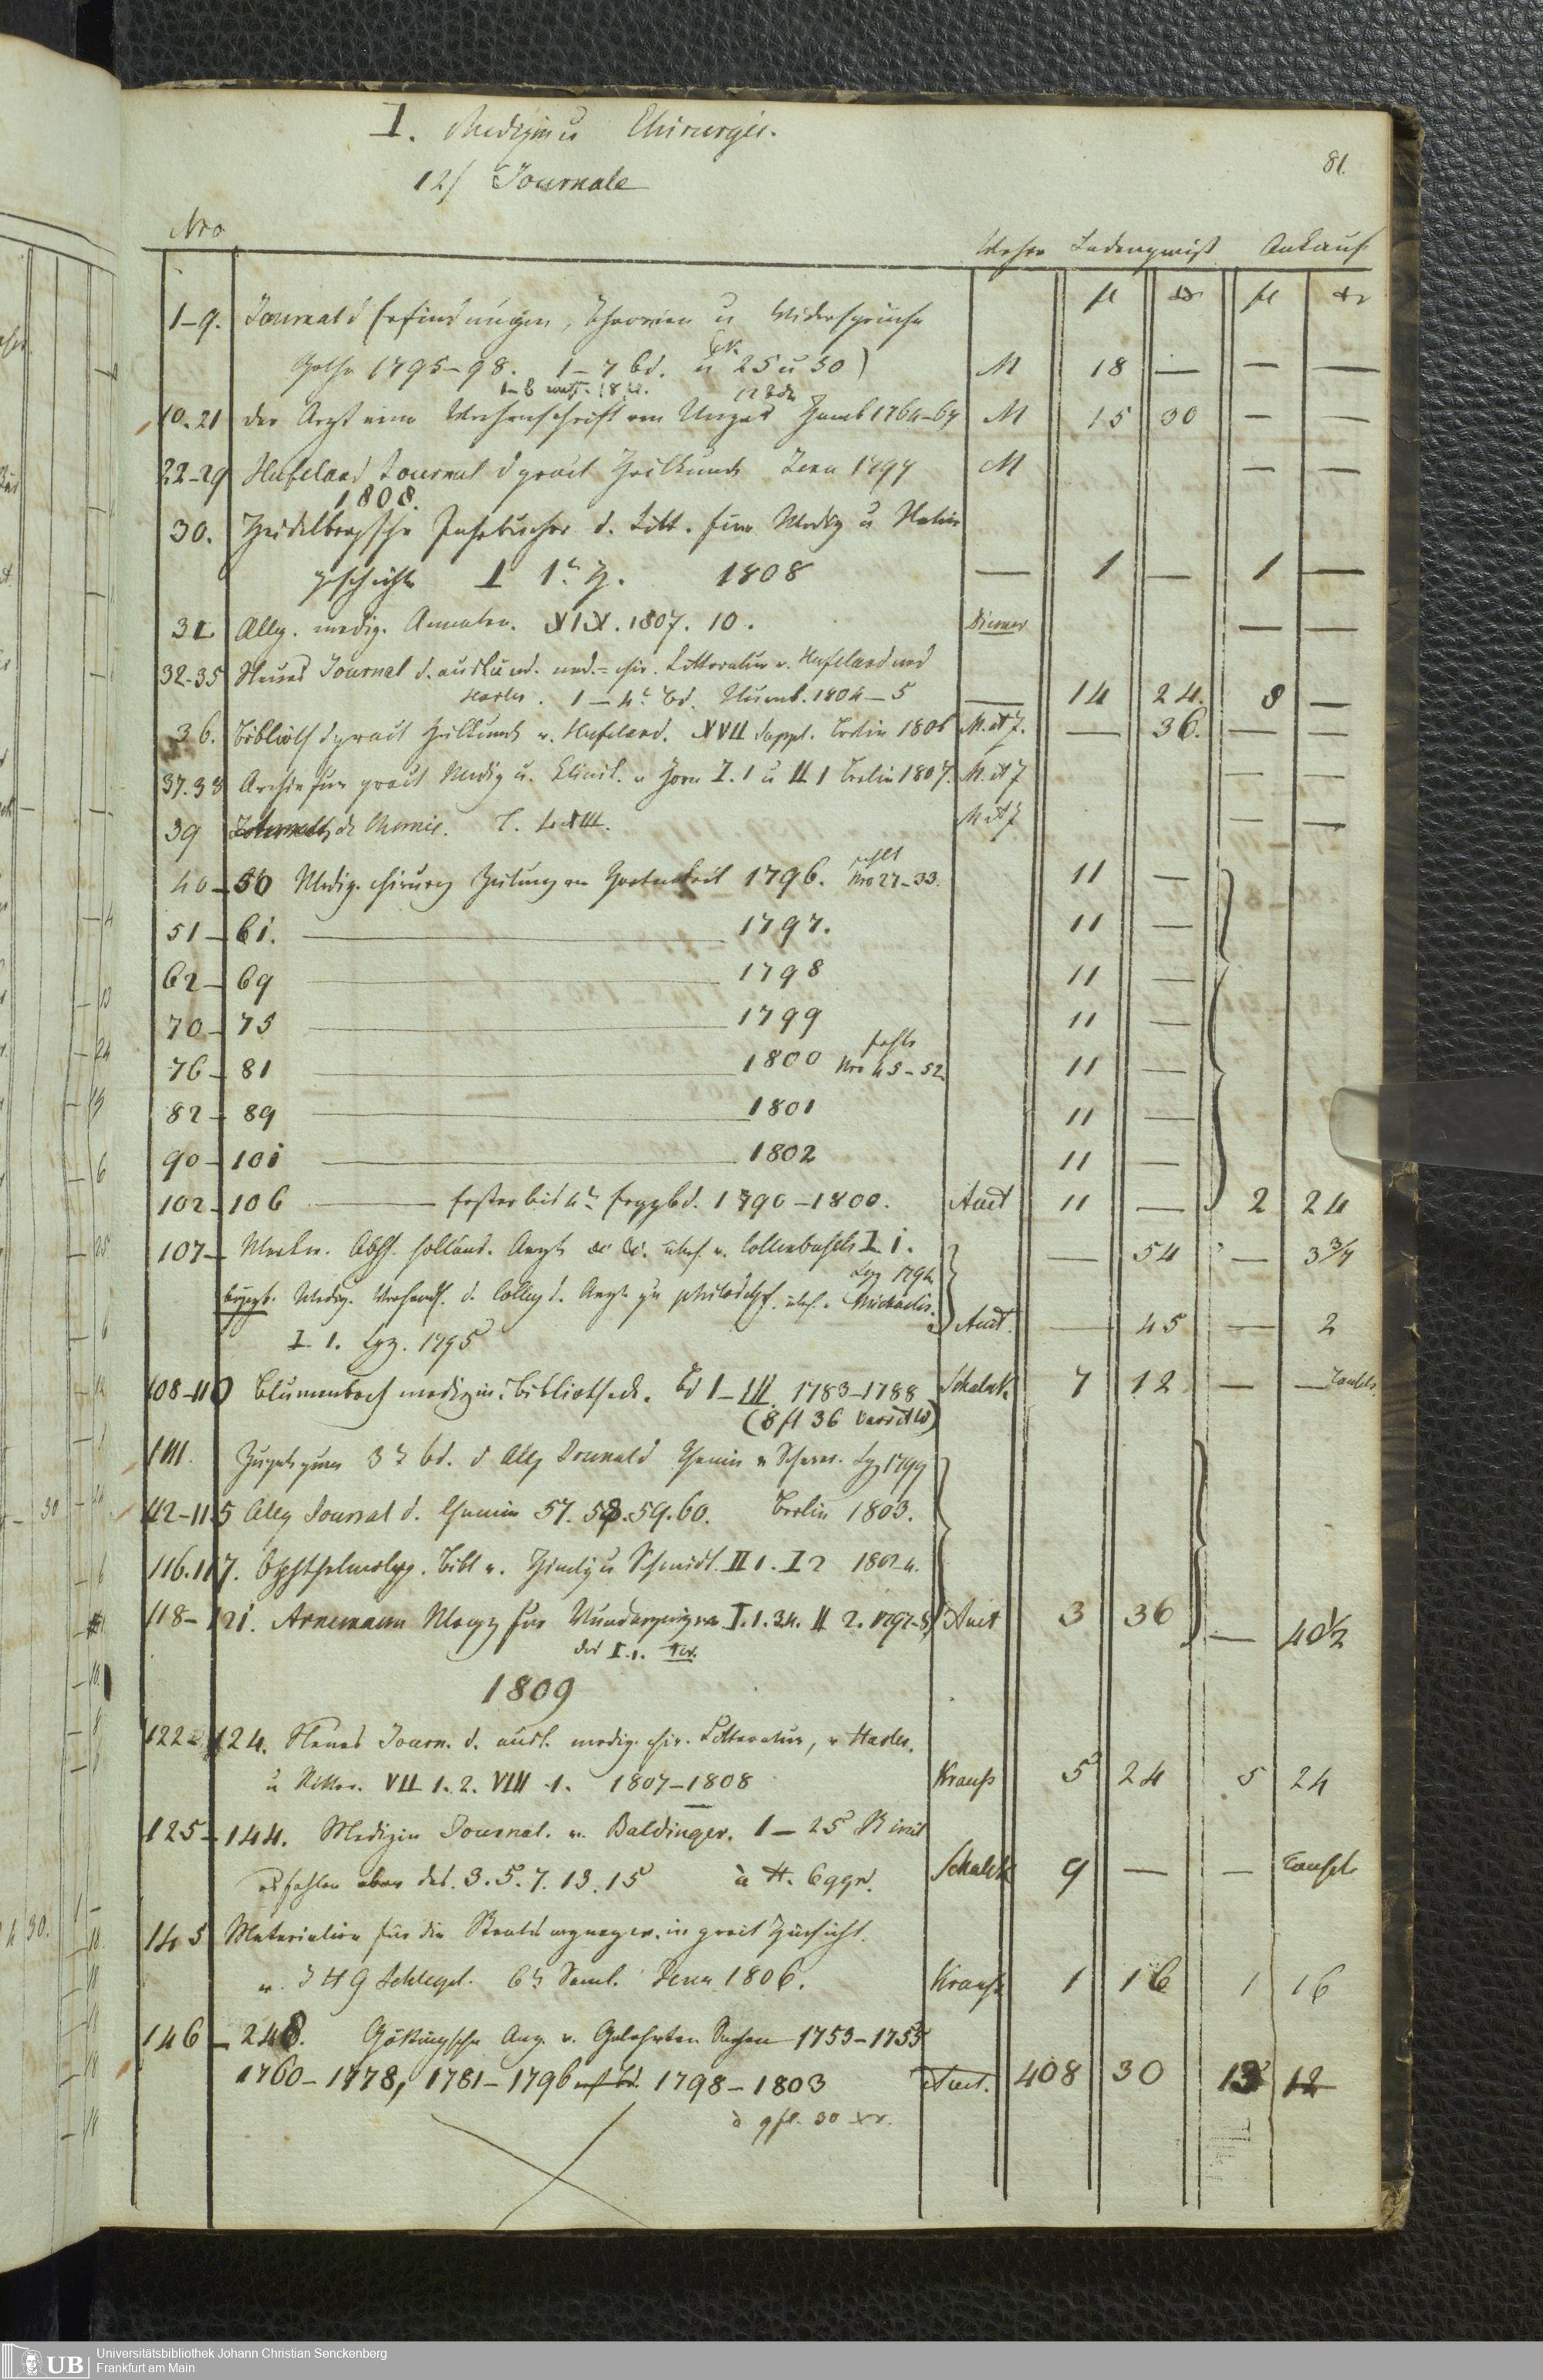 I. Medizin u Chirurgie.
12/ Journale
81.
Nro
Woher Ladenpreiß Ankauf
fl xr fl xr
1-9. Journal d Erfindungen, Theorien u Widersprüche
Gotha 1795-98. 1-7 bd. u 25 u 30) M 18 — — —
10.21 der Arzt eine Wochenschrift von Unzer 12 bde Hamb 1764-69 M 15 30 — —
22-29 Hufeland Journal d pract Heilkunde Jena 1797 M — —
1808.
30. Heidelbergsche Jahrbücher d. Litt. für Mediz u Natur
geschichte I 1s H. 1808 — 1 — 1 —
31 Allg. mediz. Annalen. 1807. 10. — —
32-35 Neues Journal d. ausländ. med.-chir. Litteratur v. Hufeland und
Harles. 1-4r bd. Nürnb. 1804-5 — 14 24. 8 —
36. Biblioth d pract Heilkunde v. Hufeland. XVII suppl. Berlin 1806 M. et J. — 36. — —
37.38 Archiv für pract Mediz u. Clinik. v Horn I. 1 u II 1 Berlin 1807. M. et J — —
39 de Chemie. M et J — —
40-50 Mediz. chirurg Zeitung von Hartenkeil 1796. fehlt Nro 27-33. 11 —
51-61. 1797. 11 —
62-69 1798 11 —
70-75 1799 11 —
76-81 1800 fehlt Nro 45-52. 11 —
82-89 1801 11 —
90-101 1802 11 —
102-106 Erster bis 4r Ergzbd. 1790-1800. Auct 11 — 2 24
107- holländ. Aerzte &c &c. übers. v. Collenbusch I. 1. — 54 — 3 3/4
Lpz 1794
Mediz. Verhandl. d. Colleg d. Aerzte zu Philadelph. übers. v. Michaelis.
I 1. Lpz. 1795 Auct. — 45 — 2
108-110 Blumenbach medizin. Bibliothek. Bd I-III. 1783-1788 Schalck 7 12 — — Tausch.
(8 fl 36
111. zum 3r bd. d Allg Journal d Chemie v Scherer. Lpz 1799
112-115 Allg Journal d. Chemie 57. 58. 59. 60. Berlin 1803.
116.117. Ophthalmolog. Bibl v. Himly u Schmidt. II 1. I 2 1802
118-121. Arnemann Magaz für Wundarzneiwiss. I. 1. 3.4. II 2. 1797-8 Auct 3 36 — 40 1/2
1809
122-124. Neues Journ. d. ausl. mediz. chir. Litteratur, v Harles.
u Ritter. VII 1. 2. VIII 1. 1807-1808 Krauß 5 24 5 24
125-144. Medizin Journal. v. Baldinger. 1-25 Stück
es fehlen aber das. 3. 5. 7. 13. 15 à St. 6 ggr. Schalck 9 — — Tausch
145 Materialien für die Staatsarzneyw. in pract Hinsicht.
v. J H G Schlegel. 6te Saml. Jena 1806. Krauß 1 16 1 16
146-248. Göttingsche Anz. v. Gelehrten Sachen 1753-1755
1760-1778, 1781-1796 1798-1803 Auct. 408 30 13 12
à 9 fl. 30 xr.
UB
Universitätsbibliothek Johann Christian Senckenberg
Frankfurt am Main